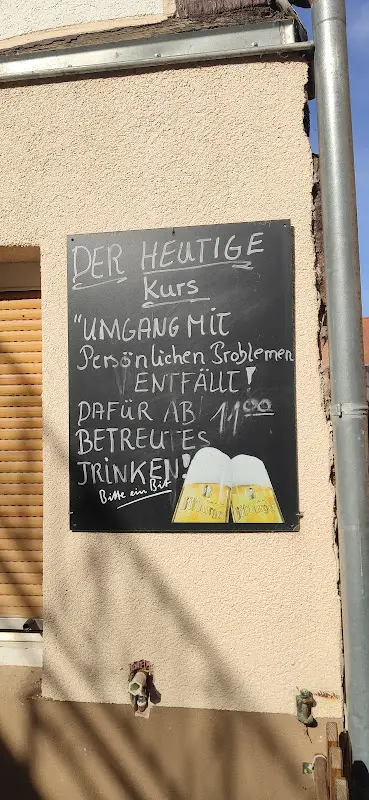 DER HEUTIGE
Kurs
"UMGANG MIT
Persönlichen Problemen
ENTFÄLLT!
DAFÜR AB 11⁰⁰
BETREUTES
TRINKEN!
Bitte ein Bit